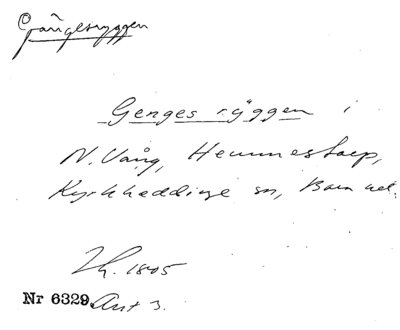 Gängesryggen
Genges ryggen i
N. Vång, Hemmestorp,
Kyrkheddinge sn, Bara hd.
1805
Nr 6329 Akt 3.